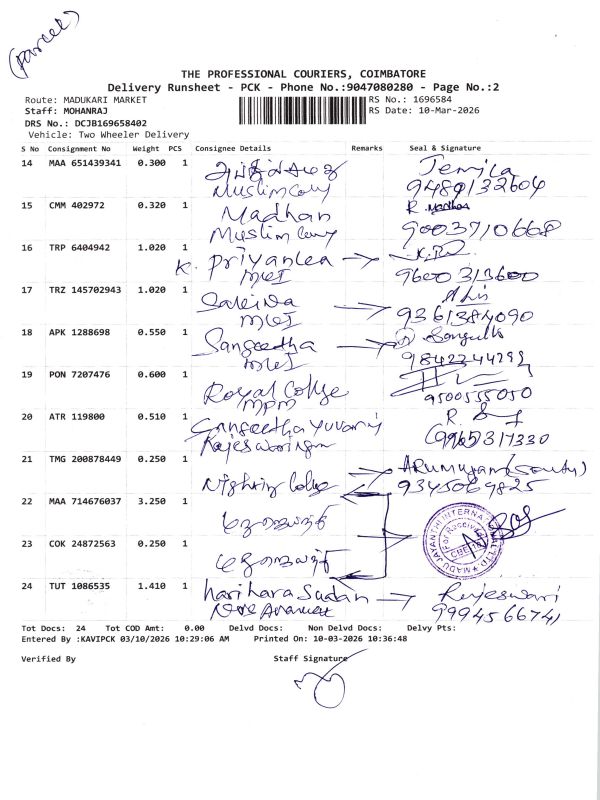 (Parcel)
THE PROFESSIONAL COURIERS, COIMBATORE
Delivery Runsheet - PCK - Phone No.:9047080280 - Page No.:2
Route: MADUKARI MARKET RS No.: 1696584
Staff: MOHANRAJ RS Date: 10-Mar-2026
DRS No.: DCJB169658402
Vehicle: Two Wheeler Delivery
S No Consignment No Weight PCS Consignee Details Remarks Seal & Signature
14 MAA 651439341 0.300 1 Jemila
Muslim Cony 9489132604
15 CMM 402972 0.320 1 Madhan R. Madhan
Muslim Cony 9003710668
16 TRP 6404942 1.020 1 K. Priyanka
9600313600
17 TRZ 145702943 1.020 1
9361384090
18 APK 1288698 0.550 1 Sangeetha
19 PON 7207476 0.600 1 Royal College
MPM 9500555050
20 ATR 119800 0.510 1 Sangeetha Yuvaraj
9965317330
21 TMG 200878449 0.250 1 ARUMUGAM
9345069825
22 MAA 714676037 3.250 1
23 COK 24872563 0.250 1
24 TUT 1086535 1.410 1 harihara Sudan Rajeswari
9994566741
Tot Docs: 24 Tot COD Amt: 0.00 Delvd Docs: Non Delvd Docs: Delvy Pts:
Entered By :KAVIPCK 03/10/2026 10:29:06 AM Printed On: 10-03-2026 10:36:48
Verified By Staff Signature